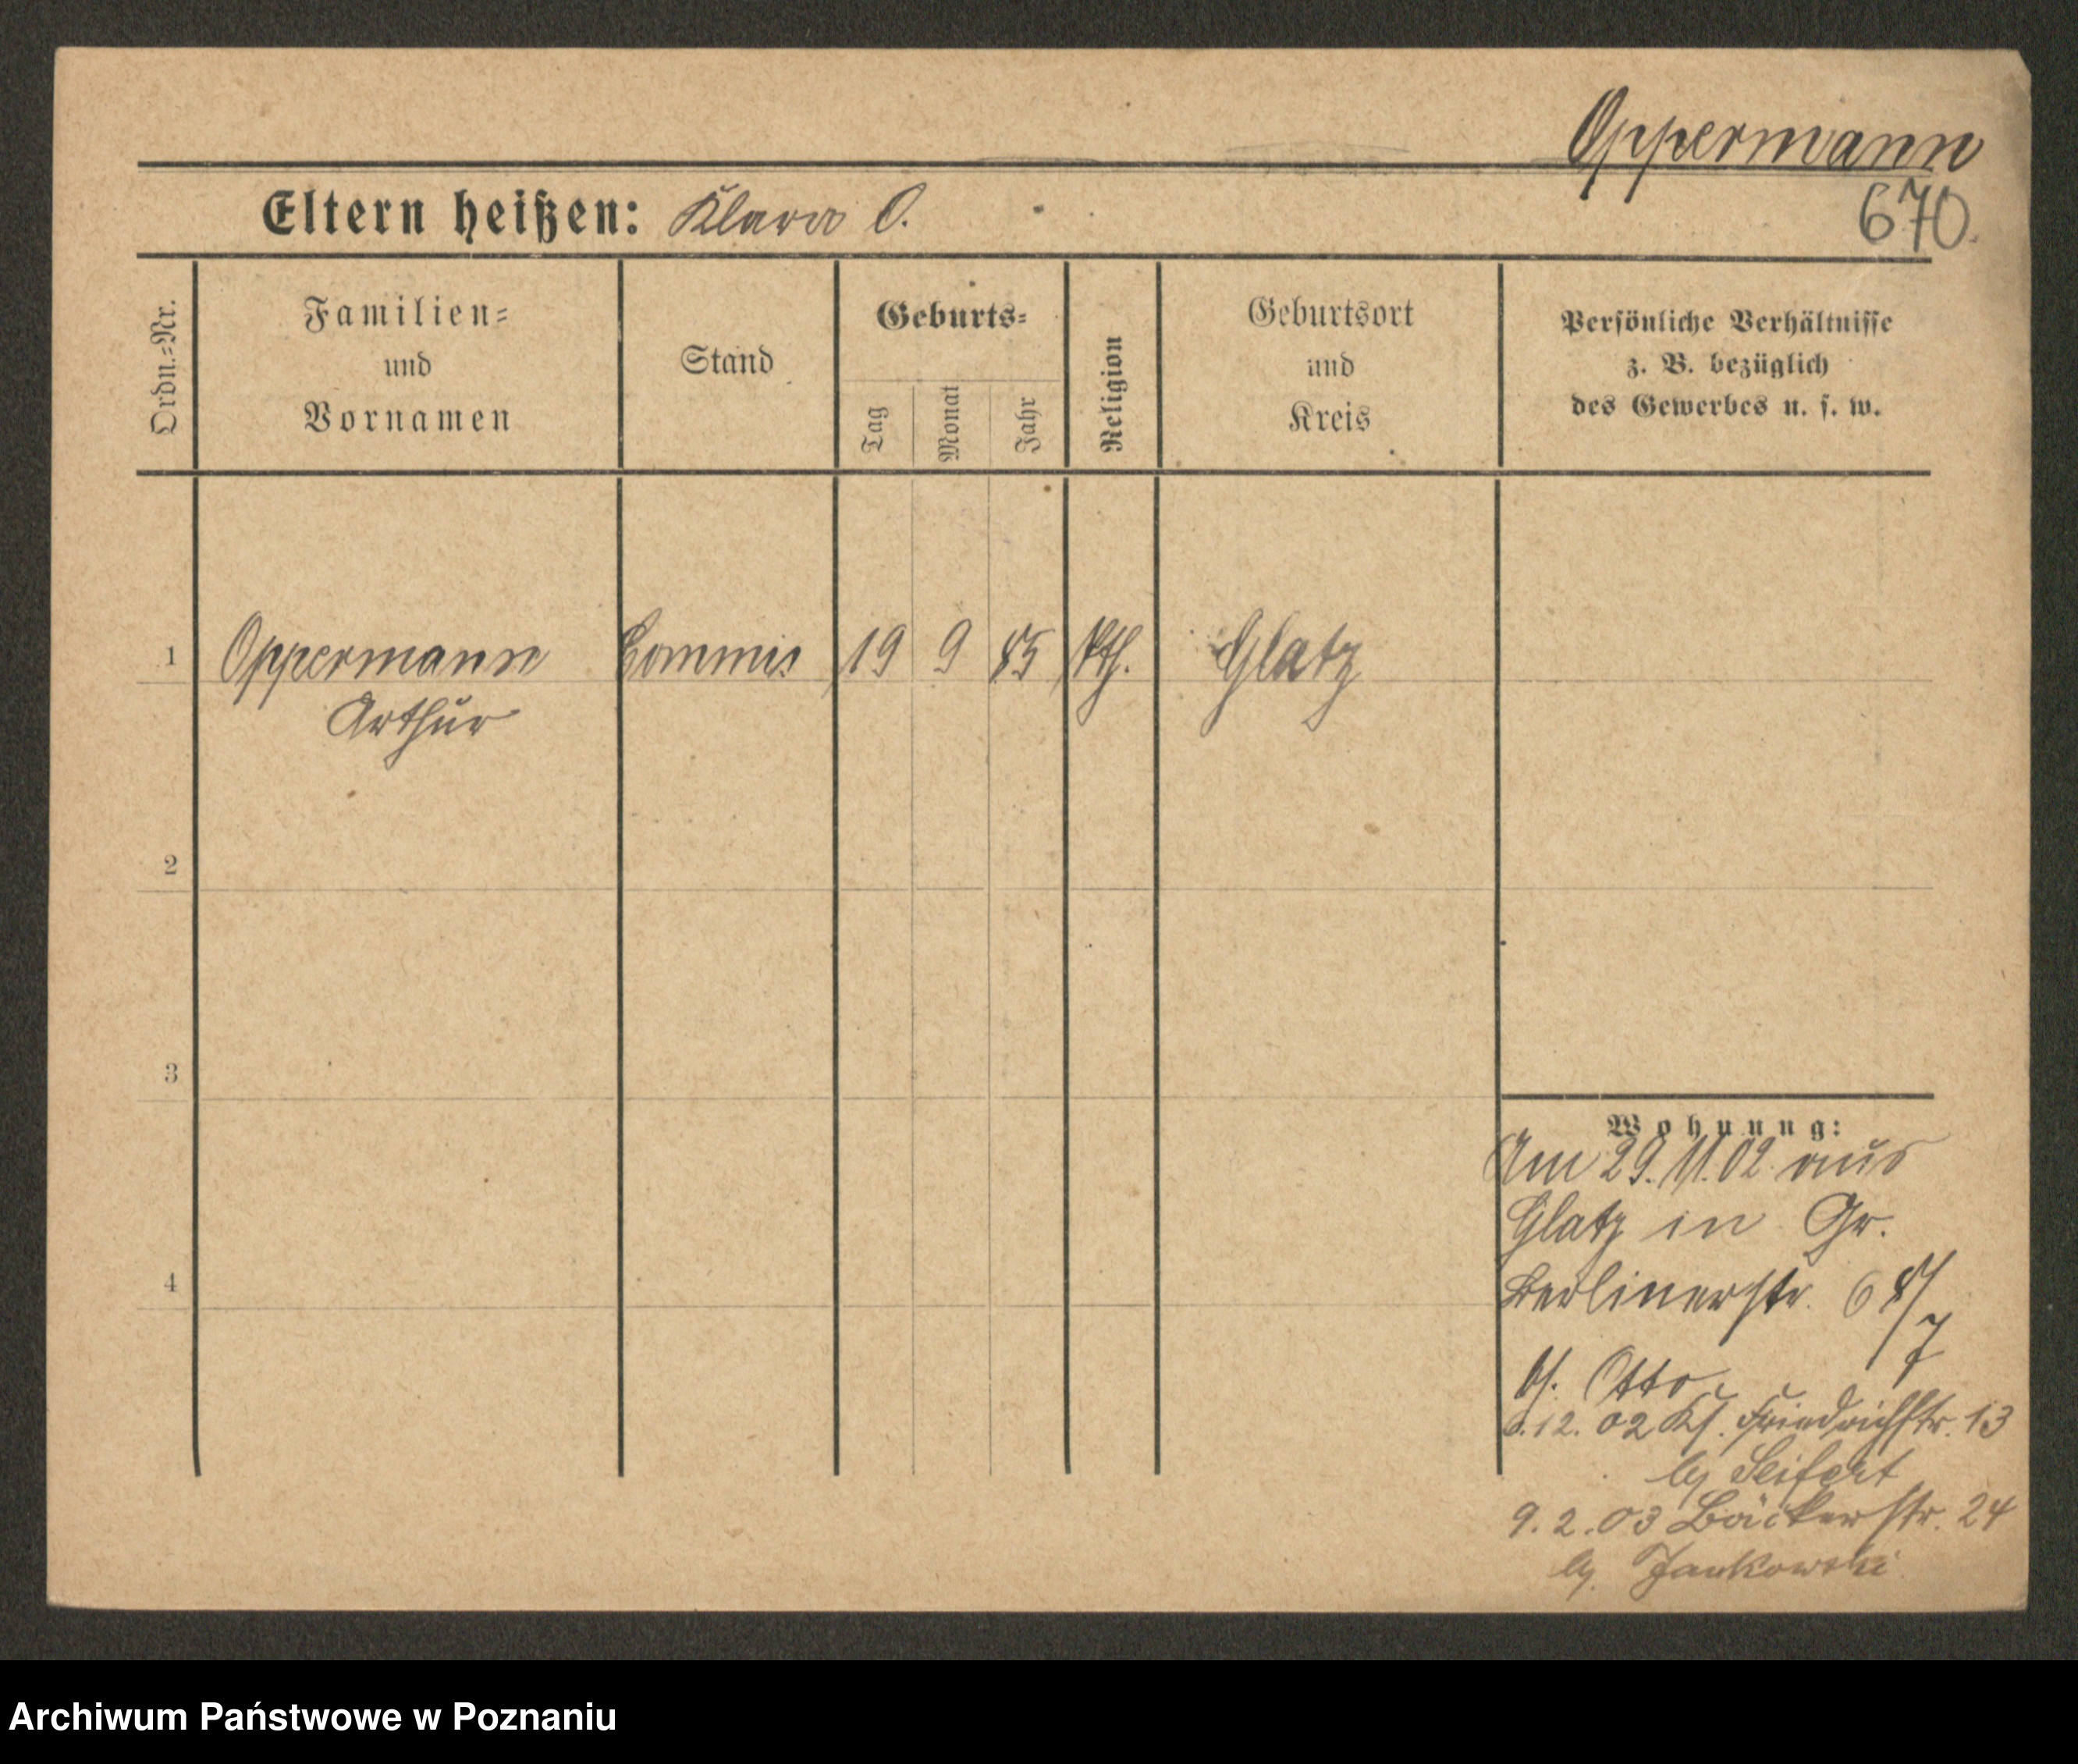 Oppermann
670.
Eltern heißen: Klara O.
Ordn.=Nr.
Familien=
und
Vornamen
Stand
Geburts=
Tag
Monat
Jahr
Religion
Geburtsort
und
Kreis
Persönliche Verhältnisse
z. B. bezüglich
des Gewerbes u. s. w.
1 Oppermann Commis 19 9 85 kth. Glatz
Arthur
2
3
4
Wohnung:
Am 29.11.02 aus
Glatz in Gr.
Berlinerstr. 68/7
bs. Otto
.12.02 Ks. Friedrichstr. 13
by Seifert
9.2.03 Bäckerstr. 24
by. Jankowski
Archiwum Państwowe w Poznaniu